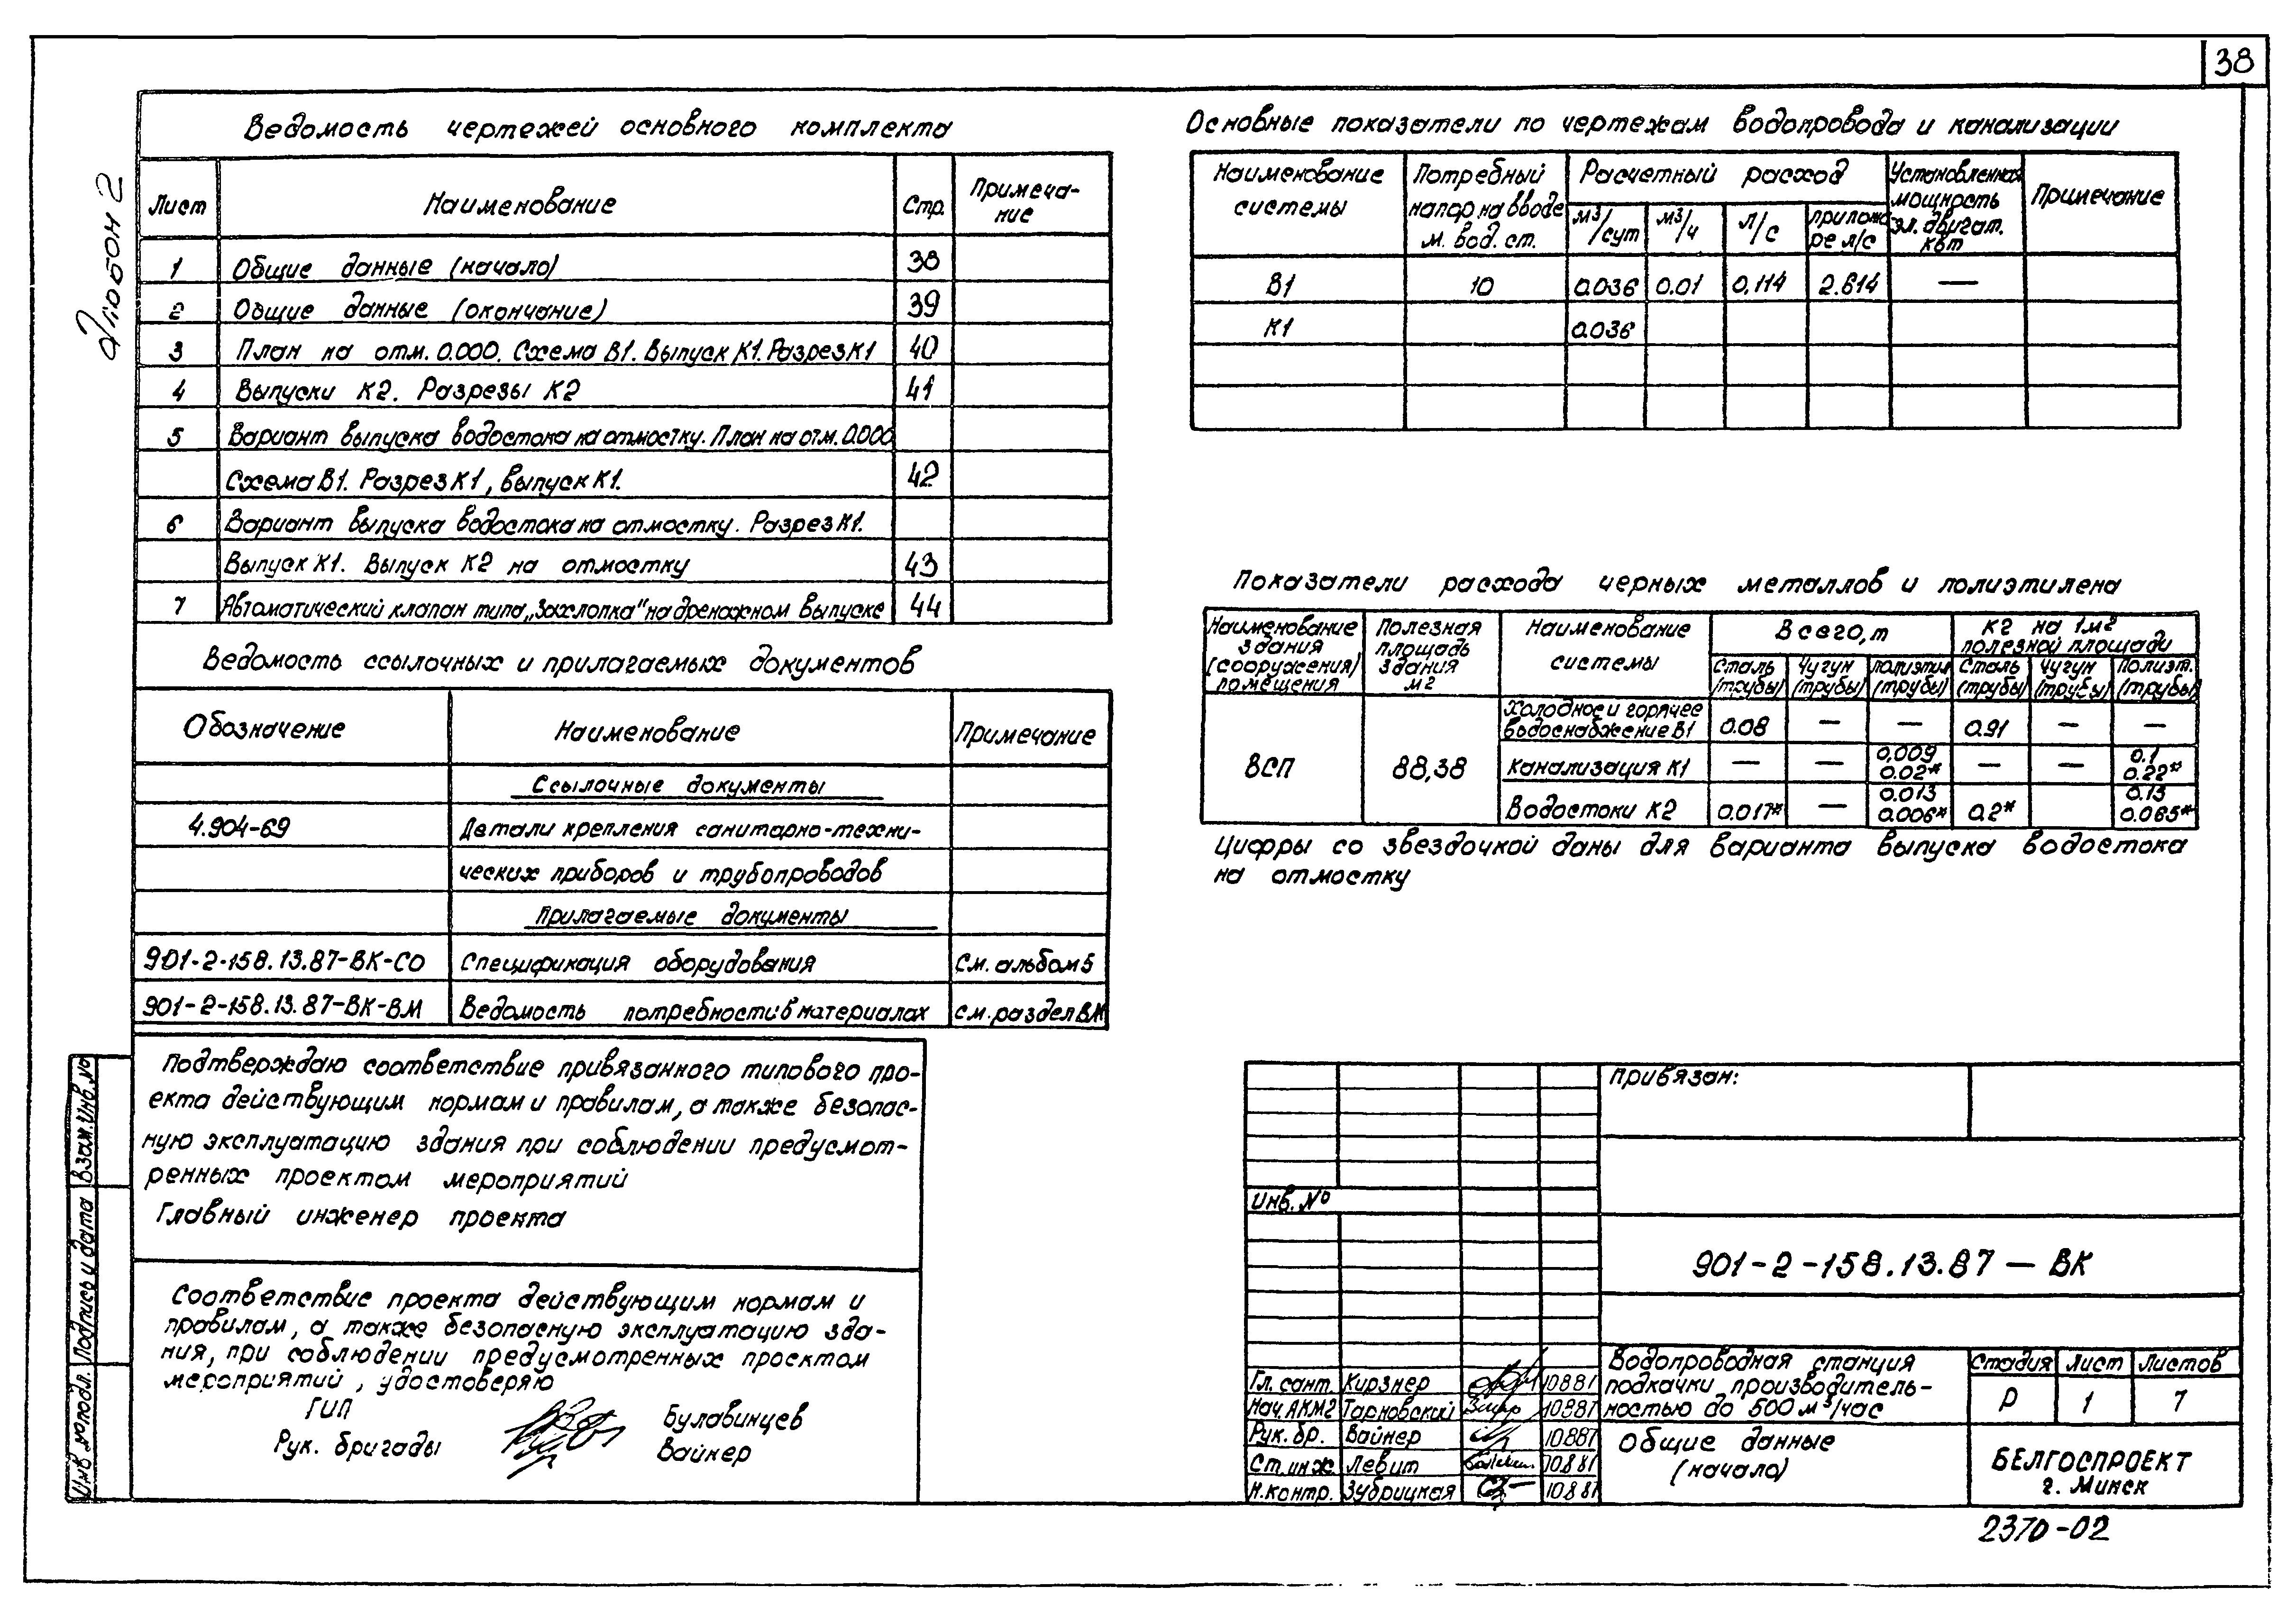 38
Альбом 2
Ведомость чертежей основного комплекта
Лист Наименование Стр. Примеча-
ние
1 Общие данные (начало) 38
2 Общие данные (окончание) 39
3 План на отм. 0.000. Схема В1. Выпуск К1. Разрез К1 40
4 Выпуски К2. Разрезы К2 41
5 Вариант выпуска водостока на отмостку. План на отм. 0.000
Схема В1. Разрез К1, выпуск К1. 42
6 Вариант выпуска водостока на отмостку. Разрез К1.
Выпуск К1. Выпуск К2 на отмостку 43
7 Автоматический клапан типа „Захлопка" на дренажном выпуске 44
Ведомость ссылочных и прилагаемых документов
Обозначение Наименование Примечание
Ссылочные документы
4.904-69 Детали крепления санитарно-техни-
ческих приборов и трубопроводов
Прилагаемые документы
901-2-158.13.87-ВК-СО Спецификация оборудования См. альбом 5
901-2-158.13.87-ВК-ВМ Ведомость потребности в материалах см. раздел ВМ
Подтверждаю соответствие привязанного типового про-
екта действующим нормам и правилам, а также безопас-
ную эксплуатацию здания при соблюдении предусмот-
ренных проектом мероприятий
Главный инженер проекта
Соответствие проекта действующим нормам и
правилам, а также безопасную эксплуатацию зда-
ния, при соблюдении предусмотренных проектом
мероприятий, удостоверяю
ГИП Булавинцев
Рук. бригады Вайнер
Основные показатели по чертежам водопровода и канализации
Наименование системы Потребный напор на вводе м. вод. ст. Расчетный расход Установленная мощность эл. двигат. квт Примечание
м³/сут м³/ч л/с припожа-
ре л/с
В1 10 0.036 0.01 0.114 2.614 —
К1 0.036
Показатели расхода черных металлов и полиэтилена
Наименование здания (сооружения) помещения Полезная площадь здания м2 Наименование системы Всего, т кг на 1м2 полезной площади
Сталь (трубы) Чугун (трубы) полиэтил (трубы) Сталь (трубы) Чугун (трубы) Полиэт. (трубы)
ВСП 88,38
Холодное и горячее водоснабжение В1 0.08 — — 0.91 — —
Канализация К1 — — 0,009 0.02* — — 0.1 0.22*
Водостоки К2 0.017* — 0.013 0.006* 0.2* 0.15 0.065*
Цифры со звездочкой даны для варианта выпуска водостока
на отмостку
Привязан:
Инв. №
901-2-158.13.87 — ВК
Гл. сант. Кирзнер 10.887
Нач. АКМ2 Тарновский 10.887
Рук. бр. Вайнер 10.887
Ст. инж. Левит 10.887
Н. контр. Зубрицкая 10.887
Водопроводная станция
подкачки производитель-
ностью до 500 м³/час
Стадия Лист Листов
Р 1 7
Общие данные
(начало)
БЕЛГОСПРОЕКТ
г. Минск
2370-02
Инв. № подл. Подпись и дата Взам. Инв. №